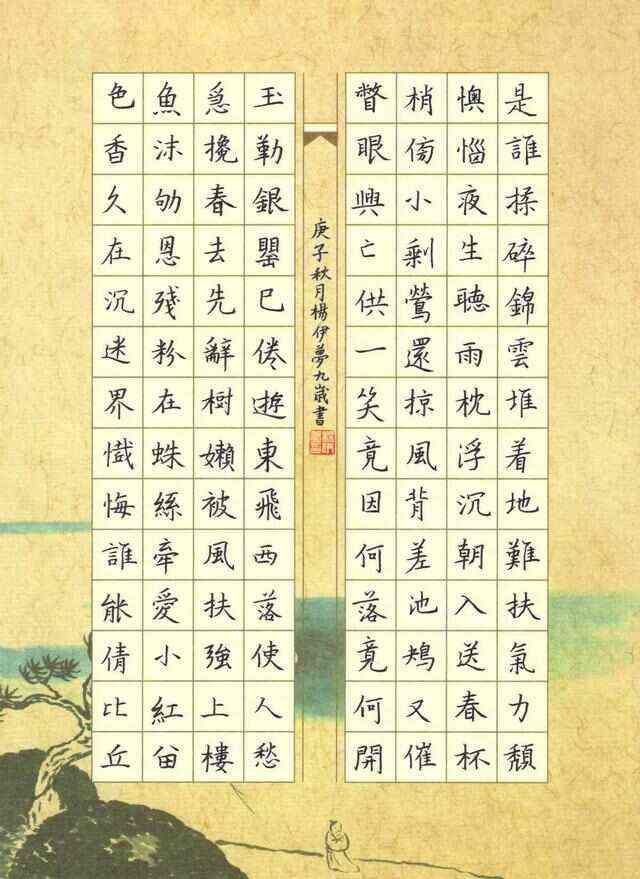 是誰揉碎錦雲堆着地難扶氣力頹
懊惱夜生聽雨枕浮沉朝入送春杯
梢傍小剩鶯還掠風背差池鴂又催
瞥眼興亡供一笑竟因何落竟何開
庚子秋月楊伊夢九歲書
玉勒銀罌已倦遊東飛西落使人愁
急攙春去先辭樹嬾被風扶強上樓
魚沫劬恩殘粉在蛛絲牽愛小紅留
色香久在沉迷界懺悔誰能倩比丘